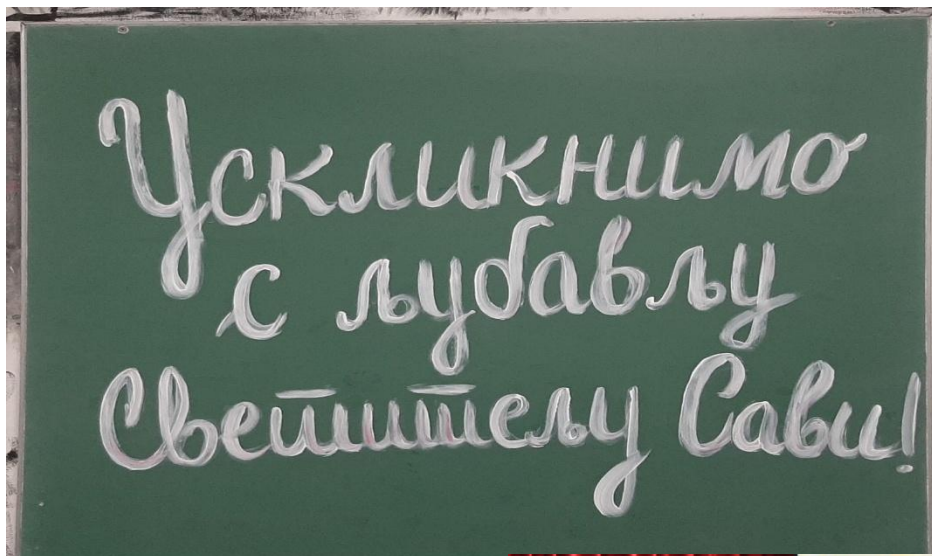 Ускликнимо
с љубављу
Светитељу Сави!